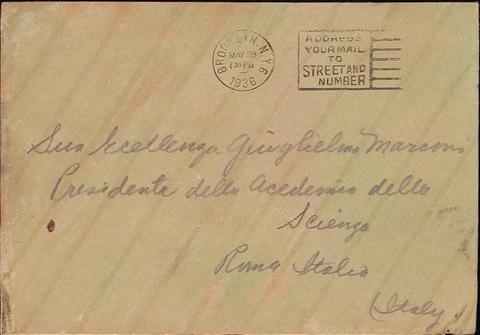 BROOKLYN, N.Y. 6
MAY 28
7:30 PM
1936
ADDRESS
YOUR MAIL
TO
STREET AND
NUMBER
Sua Eccellenza Giuglielmo Marconi
Presidente della Acedemia della
Scienza
Roma Italia
(Italy)